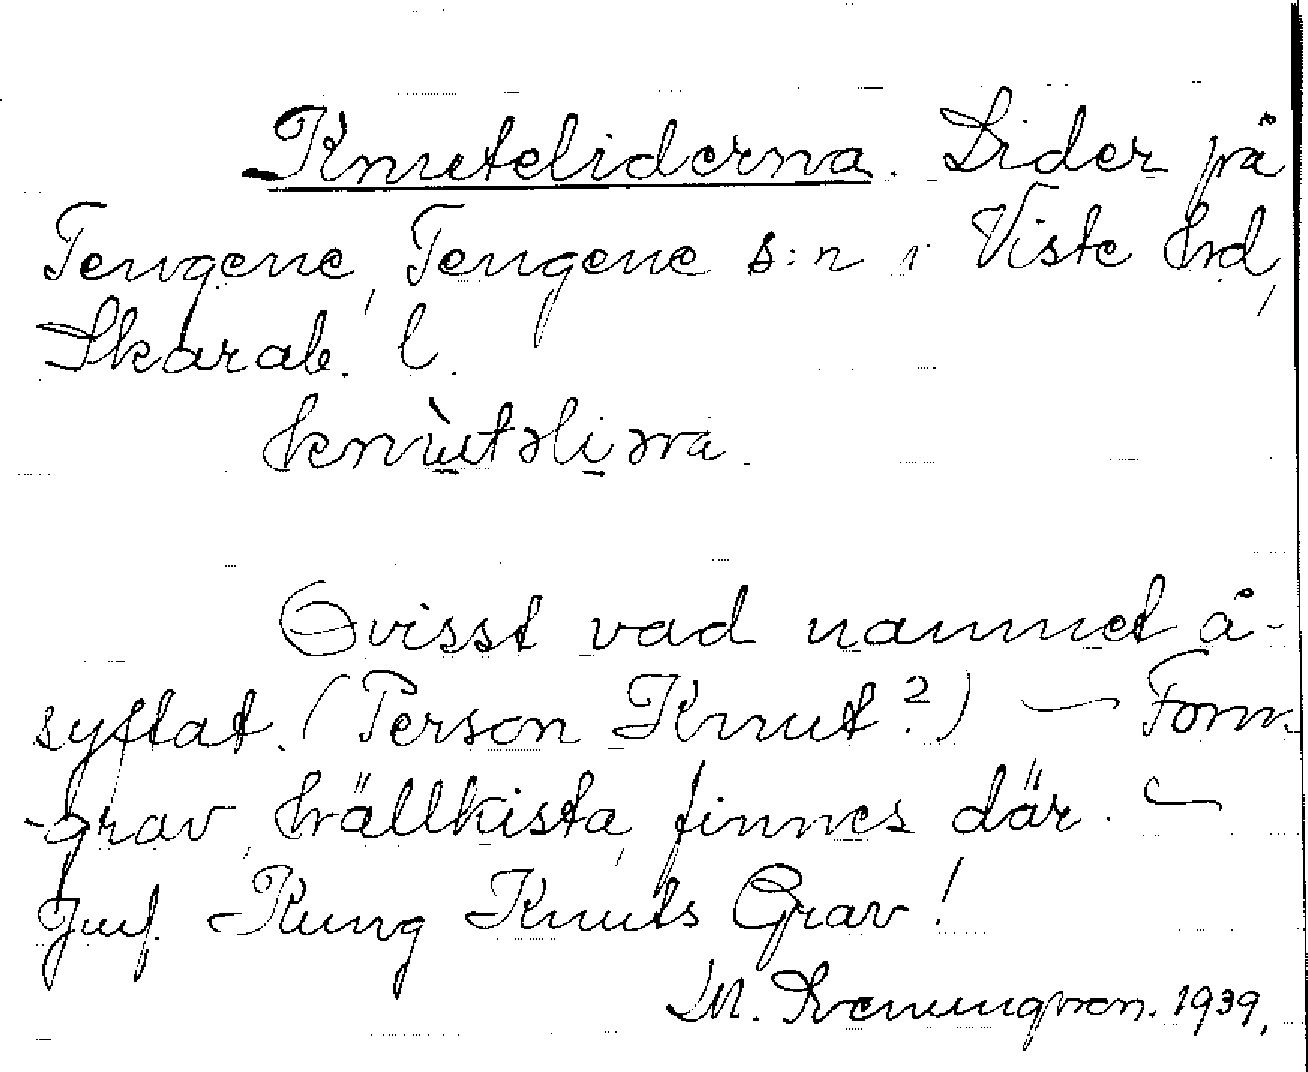 Knuteliderna. Lider på
Tengene, Tengene s:n i Viste hrd,
Skarab. l.
knùtəliəra.
Ovisst vad namnet å-
syftat. (Person Knut?) — Forn-
-grav, hällkista, finnes där. —
Jmf. Kung Knuts Grav!
1939.